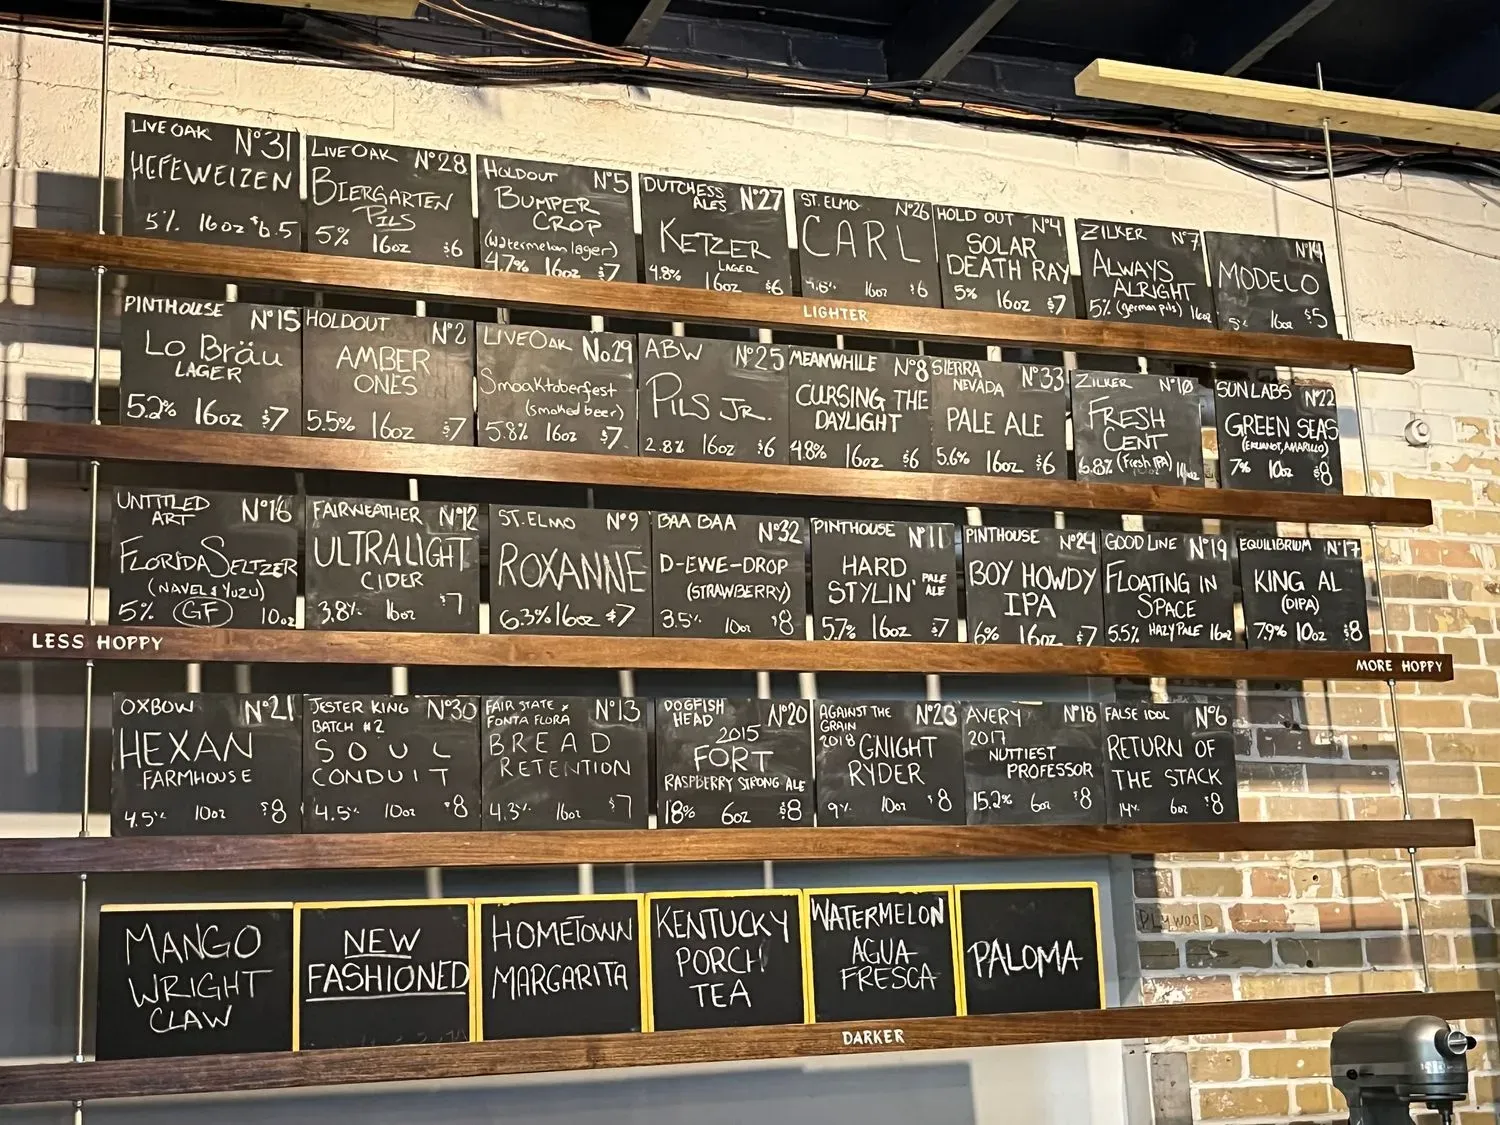 LIVE OAK N°31
HEFEWEIZEN
5% 16oz $6.5
LIVE OAK N°28
BIERGARTEN
PILS
5% 16oz $6
HOLDOUT N°5
BUMPER
CROP
(watermelon lager)
4.7% 16oz $7
DUTCHESS
ALES N°27
KETZER
LAGER
4.8% 16oz $6
ST. ELMO N°26
CARL
16oz $6
HOLD OUT N°4
SOLAR
DEATH RAY
5% 16oz $7
ZILKER N°7
ALWAYS
ALRIGHT
5% (german pils) 16oz
N°14
MODELO
5% 16oz $5
LIGHTER
PINTHOUSE N°15
LO BRÄU
LAGER
5.2% 16oz $7
HOLDOUT N°2
AMBER
ONES
5.5% 16oz $7
LIVE OAK No.29
Smoaktoberfest
(smoked beer)
5.8% 16oz $7
ABW N°25
PILS JR.
2.8% 16oz $6
MEANWHILE N°8
CURSING THE
DAYLIGHT
4.8% 16oz $6
SIERRA
NEVADA N°33
PALE ALE
5.6% 16oz $6
ZILKER N°10
FRESH
CENT
6.8% (Fresh IPA) 16oz
SUN LABS N°22
GREEN SEAS
(EKUANOT, AMARILLO)
7% 10oz $8
UNTITLED
ART N°16
FLORIDA SELTZER
(NAVEL & YUZU)
5% GF 10oz
FAIRWEATHER N°12
ULTRALIGHT
CIDER
3.8% 16oz $7
ST. ELMO N°9
ROXANNE
6.3% 16oz $7
BAA BAA N°32
D-EWE-DROP
(STRAWBERRY)
3.5% 10oz $8
PINTHOUSE N°11
HARD
STYLIN' PALE ALE
5.7% 16oz $7
PINTHOUSE N°24
BOY HOWDY
IPA
6% 16oz $7
GOOD LINE N°19
FLOATING IN
SPACE
5.5% HAZY PALE 16oz
EQUILIBRIUM N°17
KING AL
(DIPA)
7.9% 10oz $8
LESS HOPPY
MORE HOPPY
OXBOW N°21
HEXAN
FARMHOUSE
4.5% 10oz $8
JESTER KING N°30
BATCH #2
SOUL
CONDUIT
4.5% 10oz $8
FAIR STATE x
FONTA FLORA N°13
BREAD
RETENTION
4.3% 16oz $7
DOGFISH
HEAD N°20
2015
FORT
RASPBERRY STRONG ALE
18% 6oz $8
AGAINST THE
GRAIN N°23
2018 GNIGHT
RYDER
9% 10oz $8
AVERY N°18
2017
NUTTIEST
PROFESSOR
15.2% 6oz $8
FALSE IDOL N°6
RETURN OF
THE STACK
14% 6oz $8
MANGO
WRIGHT
CLAW
NEW
FASHIONED
HOMETOWN
MARGARITA
KENTUCKY
PORCH
TEA
WATERMELON
AGUA
FRESCA
PALOMA
PLYWOOD
DARKER